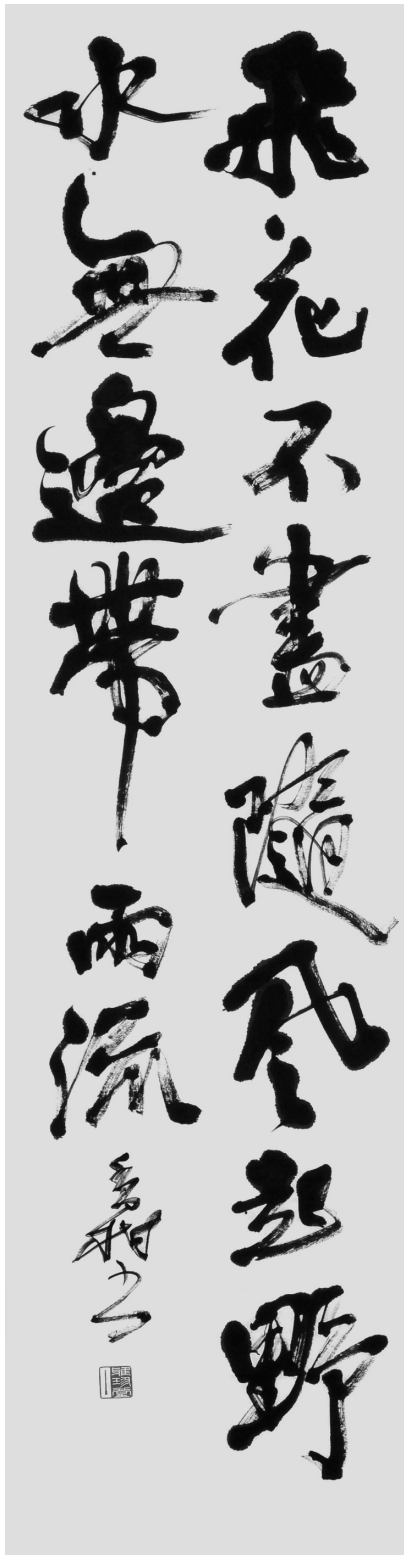 飛花不盡隨風起野
水無邊帶雨流